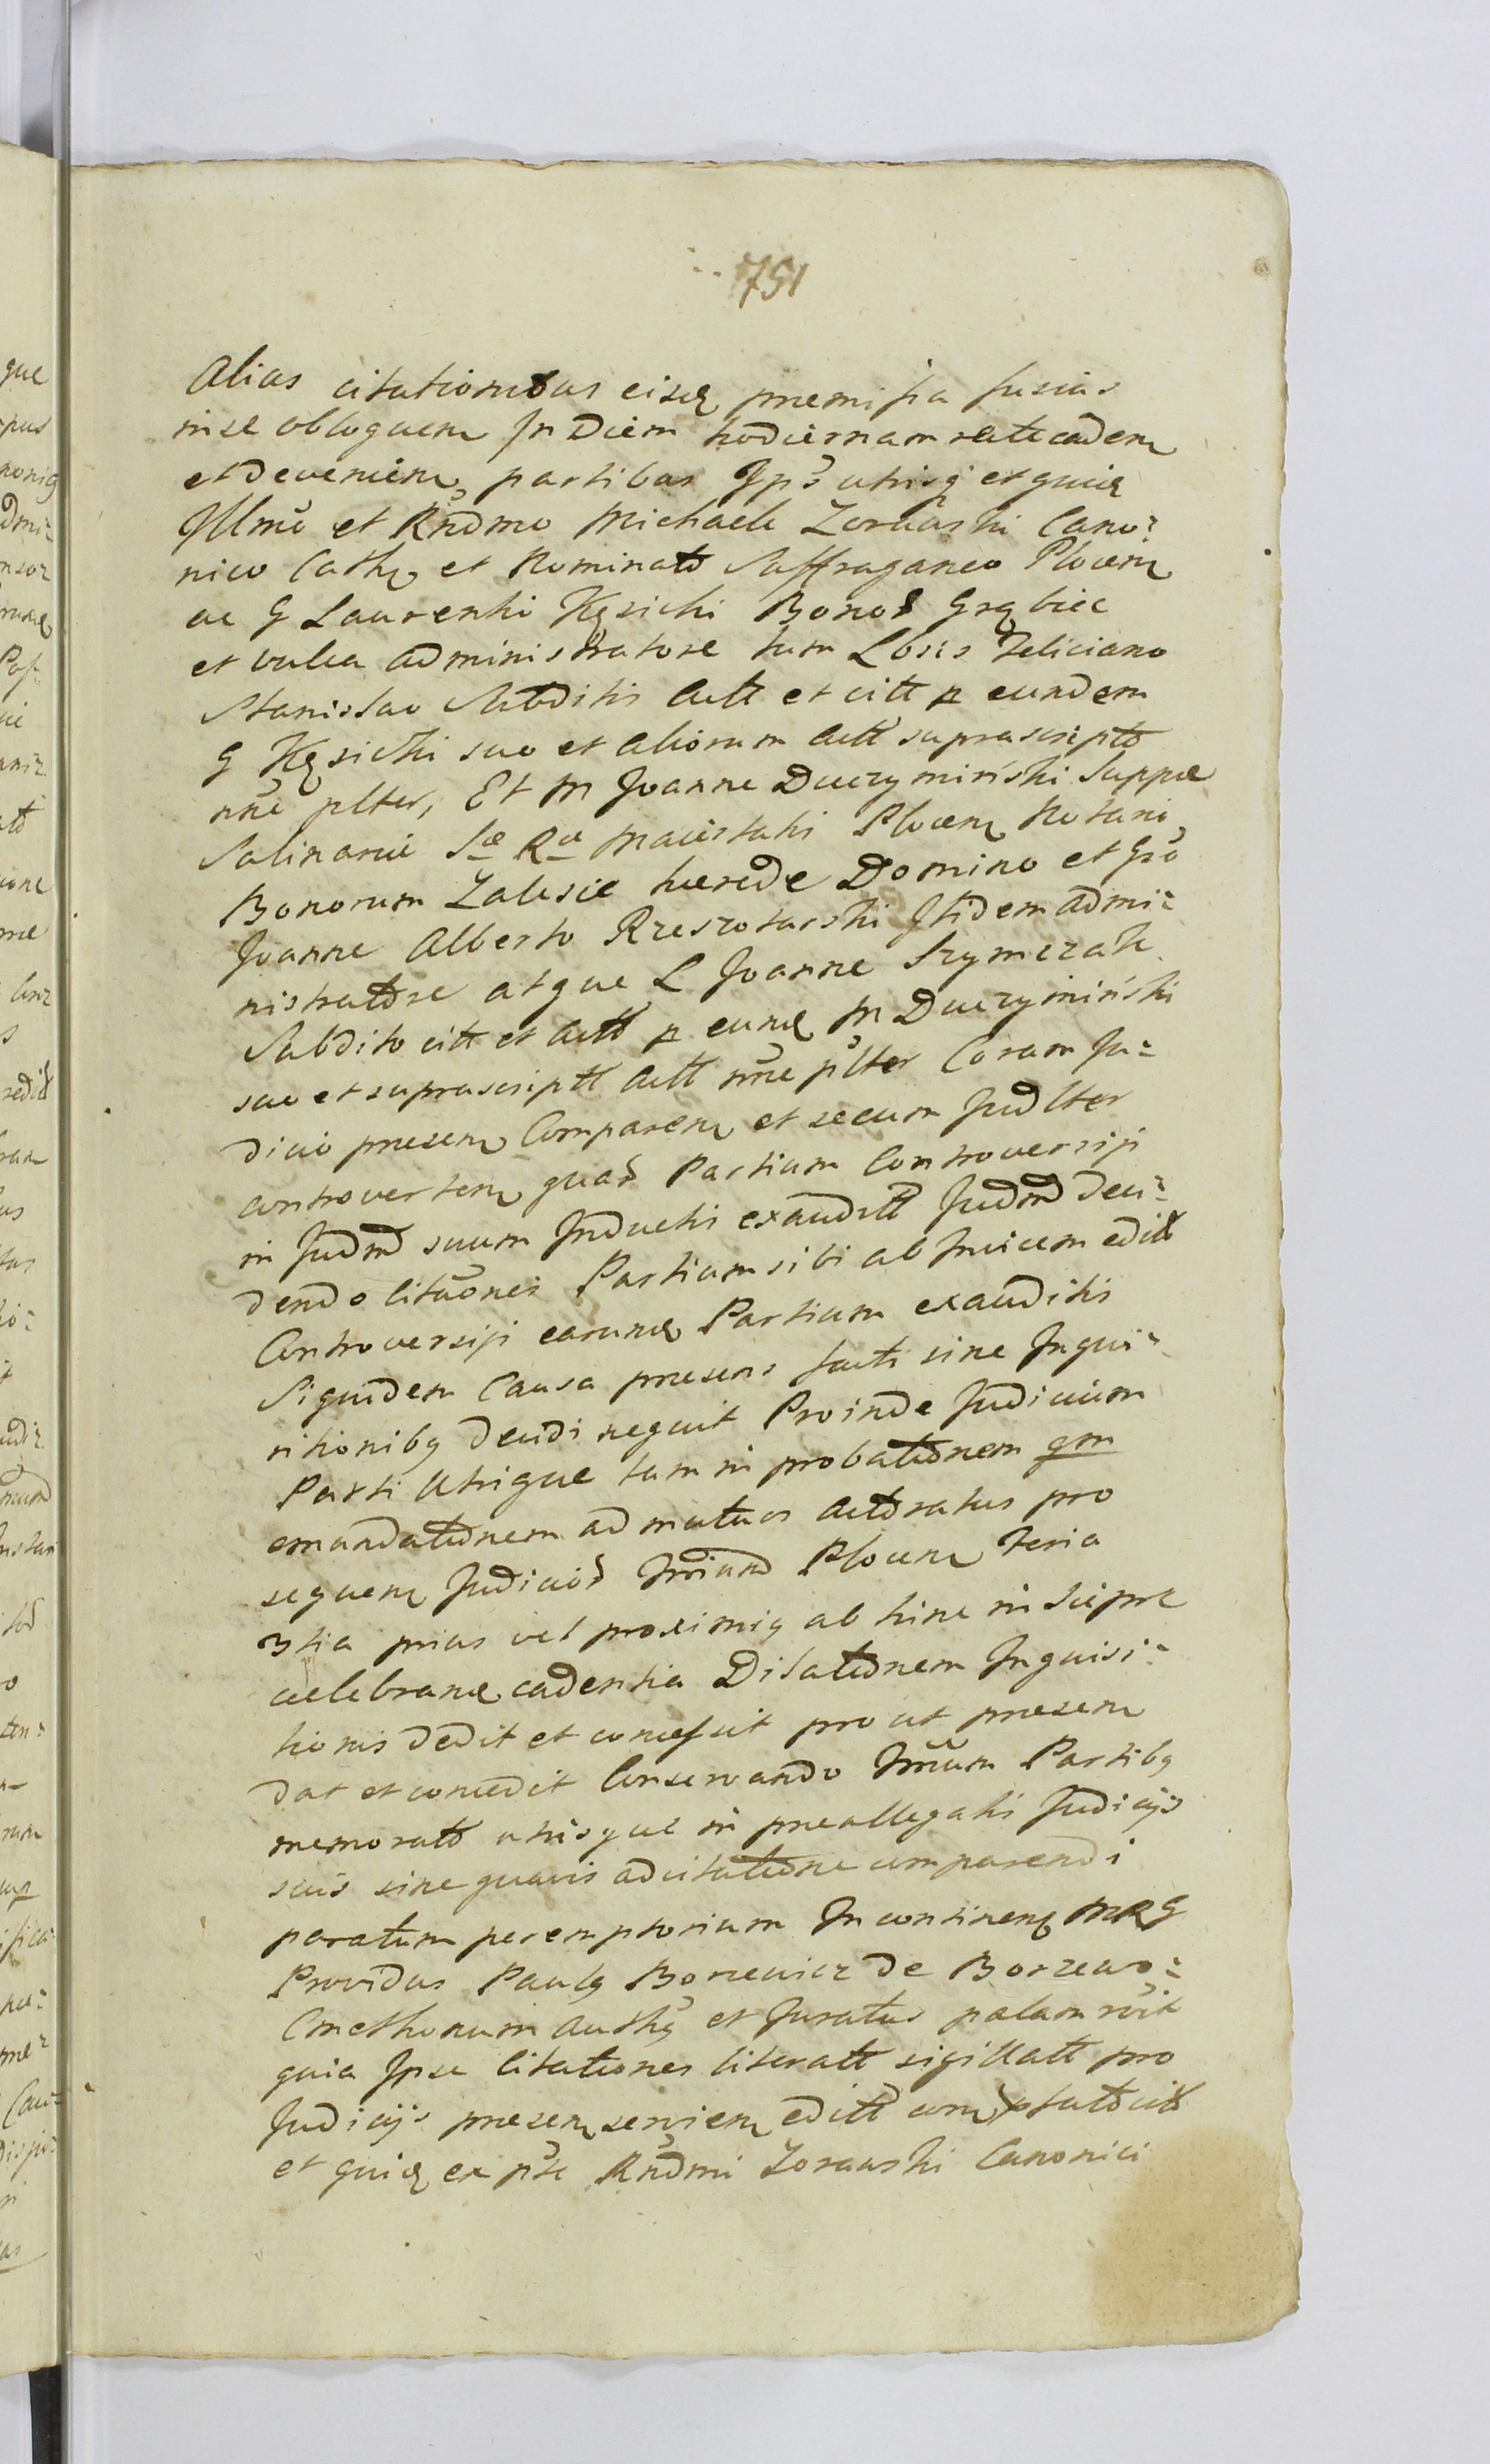 751
Alias citationibus eisq premissa fusius
in se obloquen In Diem hodiernam rite caden
et Devenien, partibus Ips utrisq et quid
Illmo et Rndmo Michaele Zorawski Cano=
nico Cath et Nominato Suffraganeo Plocen
ac G Laurentio Kęsicki Bonor Grąbiec
et Administratore tum Lbsis Feliciano
Stanislao Subditis Actt et citt p eundem
G Kęsicki suo et aliorum Actt suprascripto
nne plter, Et M Joanne Duczymiński Suppae
Salinariae Sae Rae Maiestatis Plocen Notario
Bonorum Zalesie haerede Domino et Gso
Joanne Alberto Rzeszotarski Itidem admi=
nistratore atque L Joanne Szymczak
Subdito citt et Actt p eund M Duczymiński
suo et suprascriptt Actt nne plter Coram Ju=
dicio praesen Comparen et secum Judlter
controverten quar Partium Controversiji
in Judm suum Inductis exauditt Judm Deci=
dendo citaones Partium sibi ab Invicem edit
Controversiji earund Partium exauditis
Siquidem Causa praesens facti sine Inqui=
sitionibg Decidi nequit Proinde Judicium
Parti Utrique tam in probationem qm
emandationem ad mutuos Actoratus pro
sequen Judicior Plocen Feria
3tia prius vel proximis ab hinc in
celebrand cadentia Dilationem Inquisi=
tionis Dedit et concessit prout praesen
Dat et concedit Conservando Trium Partibg
memorato utrisque in praeallegatis Judicijs
suis sine quavis adcitatione comparendi
paratum peremptorium In continen MRG
Providus Paulg Borzewicz De Borzewo=
Cmethonum authg et Juratus palam rcit
quia Ipse Citationes literatt sigillatt pro
Judicijs praesen servien editt
et quid ex pte Rndmi Zorawski Canonici